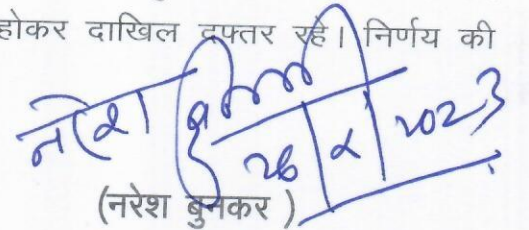 होकर दाखिल दफ्तर रहे। निर्णय की
नरेश
26 / 2 / 2023
(नरेश बुनकर )